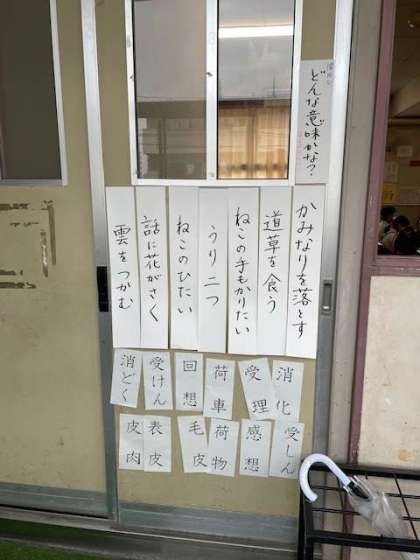 どんな意味かな？
かみなりを落とす
道草を食う
ねこの手もかりたい
うり二つ
ねこのひたい
話に花がさく
雲をつかむ
消化
受理
荷車
回想
受けん
消どく
受しん
感想
荷物
毛皮
表皮
皮肉